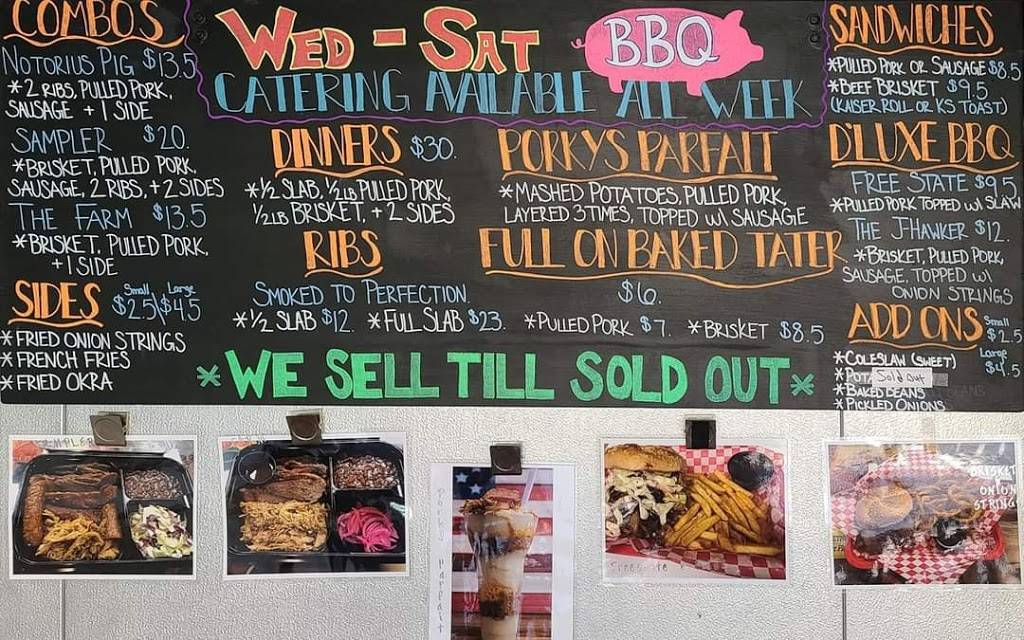 COMBO'S
NOTORIUS PIG $13.5
*2 RIBS, PULLED PORK,
SAUSAGE + 1 SIDE
SAMPLER $20.
*BRISKET, PULLED PORK,
SAUSAGE, 2 RIBS, + 2 SIDES
THE FARM $13.5
*BRISKET, PULLED PORK,
+ 1 SIDE
SIDES Small Large
$2.5\$4.5
*FRIED ONION STRINGS
*FRENCH FRIES
*FRIED OKRA
WED - SAT BBQ
CATERING AVAILABLE ALL WEEK
DINNERS $30.
*1/2 SLAB, 1/2LB PULLED PORK,
1/2LB BRISKET, + 2 SIDES
RIBS
SMOKED TO PERFECTION.
*1/2 SLAB $12. *FULL SLAB $23.
PORKYS PARFAIT
*MASHED POTATOES, PULLED PORK,
LAYERED 3 TIMES, TOPPED W/ SAUSAGE
FULL ON BAKED TATER
$6.
*PULLED PORK $7. *BRISKET $8.5
*WE SELL TILL SOLD OUT*
SANDWICHES
*PULLED PORK OR SAUSAGE $8.5
*BEEF BRISKET $9.5
(KAISER ROLL OR KS TOAST)
D'LUXE BBQ
FREE STATE $9.5
*PULLED PORK TOPPED W/ SLAW
THE J-HAWKER $12.
*BRISKET, PULLED PORK,
SAUSAGE, TOPPED W/
ONION STRINGS
ADD ONS Small
$2.5
Large
$4.5
*COLESLAW (SWEET)
*POTA Sold Out
*BAKED BEANS
*PICKLED ONIONS
Porky Parfait
Freestate
BRISKET
ONION
STRING